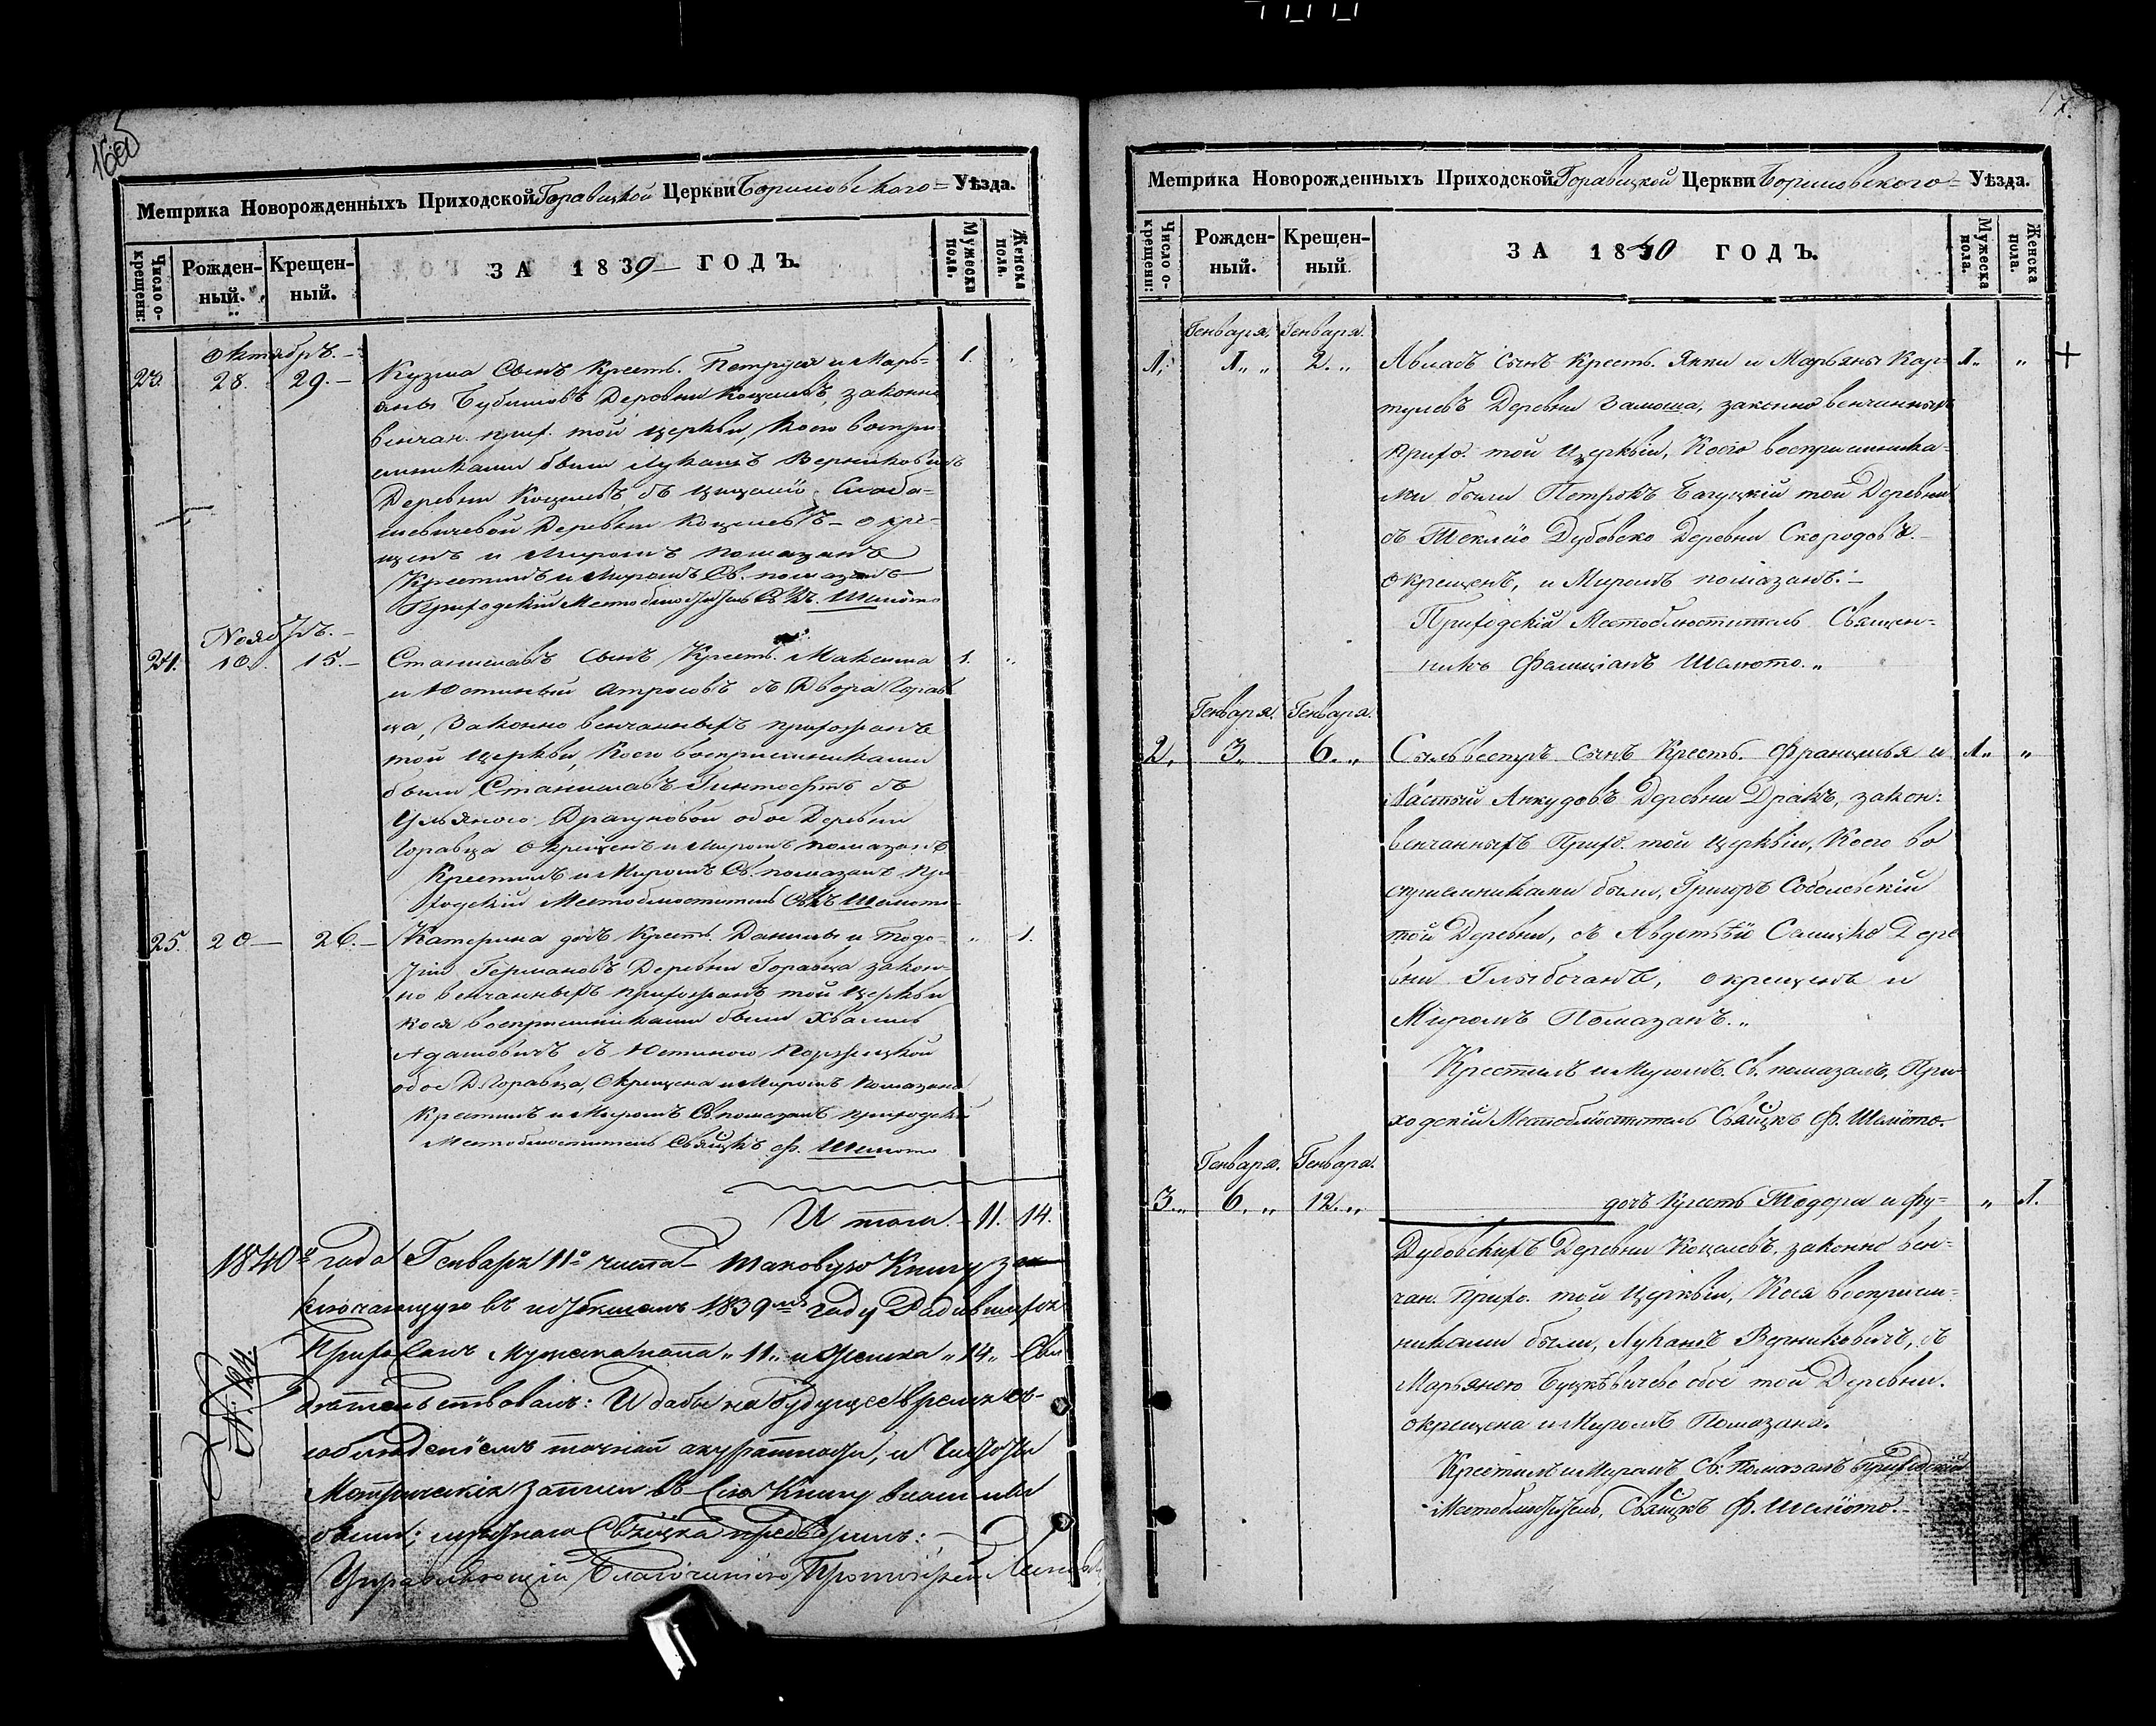 Метрика Новорожденныхъ Приходской Горавицкой Церкви Борисовского Уѣзда.
Число о-крещенн:
Рожден-ный.
Крещен-ный.
ЗА 1839 ГОДЪ.
Мужеска пола.
Женска пола.
октябръ.
23. 28. 29. Кузма Сынъ Крест. Петруся и Марь= 1.
яны Деревни Кощелевъ, законно
венчан. прих. той церкви, Коего воспри
емниками были Луканъ Верниковичъ
Деревни Кощелевъ съ
Деревни Кощелевъ окре-
щенъ и Миромъ помазанъ
Крестилъ и Миромъ Св. помазалъ
Приходскій Местоблюститель Шелюто
Ноябрь.
24. 10. 15. Станиславъ Сынъ Крест. Максима 1. "
и Юстиный съ Двора Горав
ца, Законно венчанныхъ прихожанъ
той церкви, Коего восприемниками
были Станиславъ съ
Ульяною Драгуновой обое Деревни
Горавца окрещенъ и Миромъ помазанъ
Крестилъ и Миромъ Св. помазалъ При
ходскій Местоблюститель Шелюто
25. 20 26. Катерина дочь Крест. Данилы и Тодо- " 1.
Германовъ Деревни Горавца закон-
но венчанныхъ прихожанъ той Церкви
коея восприемниками были
Адамовичъ съ Юстиною
обое Д. Горавца, Окрещена и Миромъ помазана
Крестилъ и Миромъ Св. помазалъ приходскій
Местоблюститель Свящкъ Ф. Шелюто
Итого 11. 14.
1840го года Генваря 11го числа таковую Книгу за-
ключающую въ 1839мъ году
Прихожанъ Мужеска пола "11" и Женска "14" Сви
дѣтельствовалъ: И дабы на будущее время съ-
соблюденіемъ точной акуратности, и чистоты
Метрическія записи въ сію Книгу вносимы
были;
Управляющій Благочиніемъ Протоіерей
17.
Метрика Новорожденныхъ Приходской Горавицкой Церкви Борисовского Уѣзда.
Число о-крещенн:
Рожден-ный.
Крещен-ный.
ЗА 1840 ГОДЪ.
Мужеска пола.
Женска пола.
Генваря. Генваря.
1. 1. " 2. " Авладъ сынъ Кресть. Янки и Марьяны Кар= 1. "
тулевъ Деревни Замоша, законно венчанныхъ
Прихо. той Церквіи, Коего восприемника-
ми были Петрокъ Багуцкій той Деревни
съ Теклею Дубовско Деревни Скородовъ.
окрещенъ, и Миромъ помазанъ.
Приходскій Местоблюститель Священ-
никъ Фелиціанъ Шелюто. "
Генваря. Генваря.
2. 3. 6. " Сильвестръ сынъ Кресть. Францишка и 1. "
Настый Анкудовъ Деревни Дракъ, закон:
венчанныхъ Прихо. той Церквіи, Коего во
сприемниками были, Григоръ Соболевскій
той Деревни, съ Дере
вни Глыбочанъ, окрещенъ и
Миромъ Помазанъ. "
Крестилъ и Миромъ Св. помазалъ, При
ходскій Местоблюститель Свящкъ Ф. Шелюто.
Генваря. Генваря.
3. " 6. " 12. " дочь Кресть Тодора и " 1.
Дубовскихъ Деревни Кощелевъ, законно вен-
чан. Прихо. той Церквіи, Коея восприем-
никами были, Луканъ Верниковичъ, съ
Марьяною обое той Деревни.
окрещена и Миромъ Помазана.
Крестилъ и Миромъ Св. Помазалъ Приходскій
Местоблюститель, Свящкъ Ф. Шелюто.